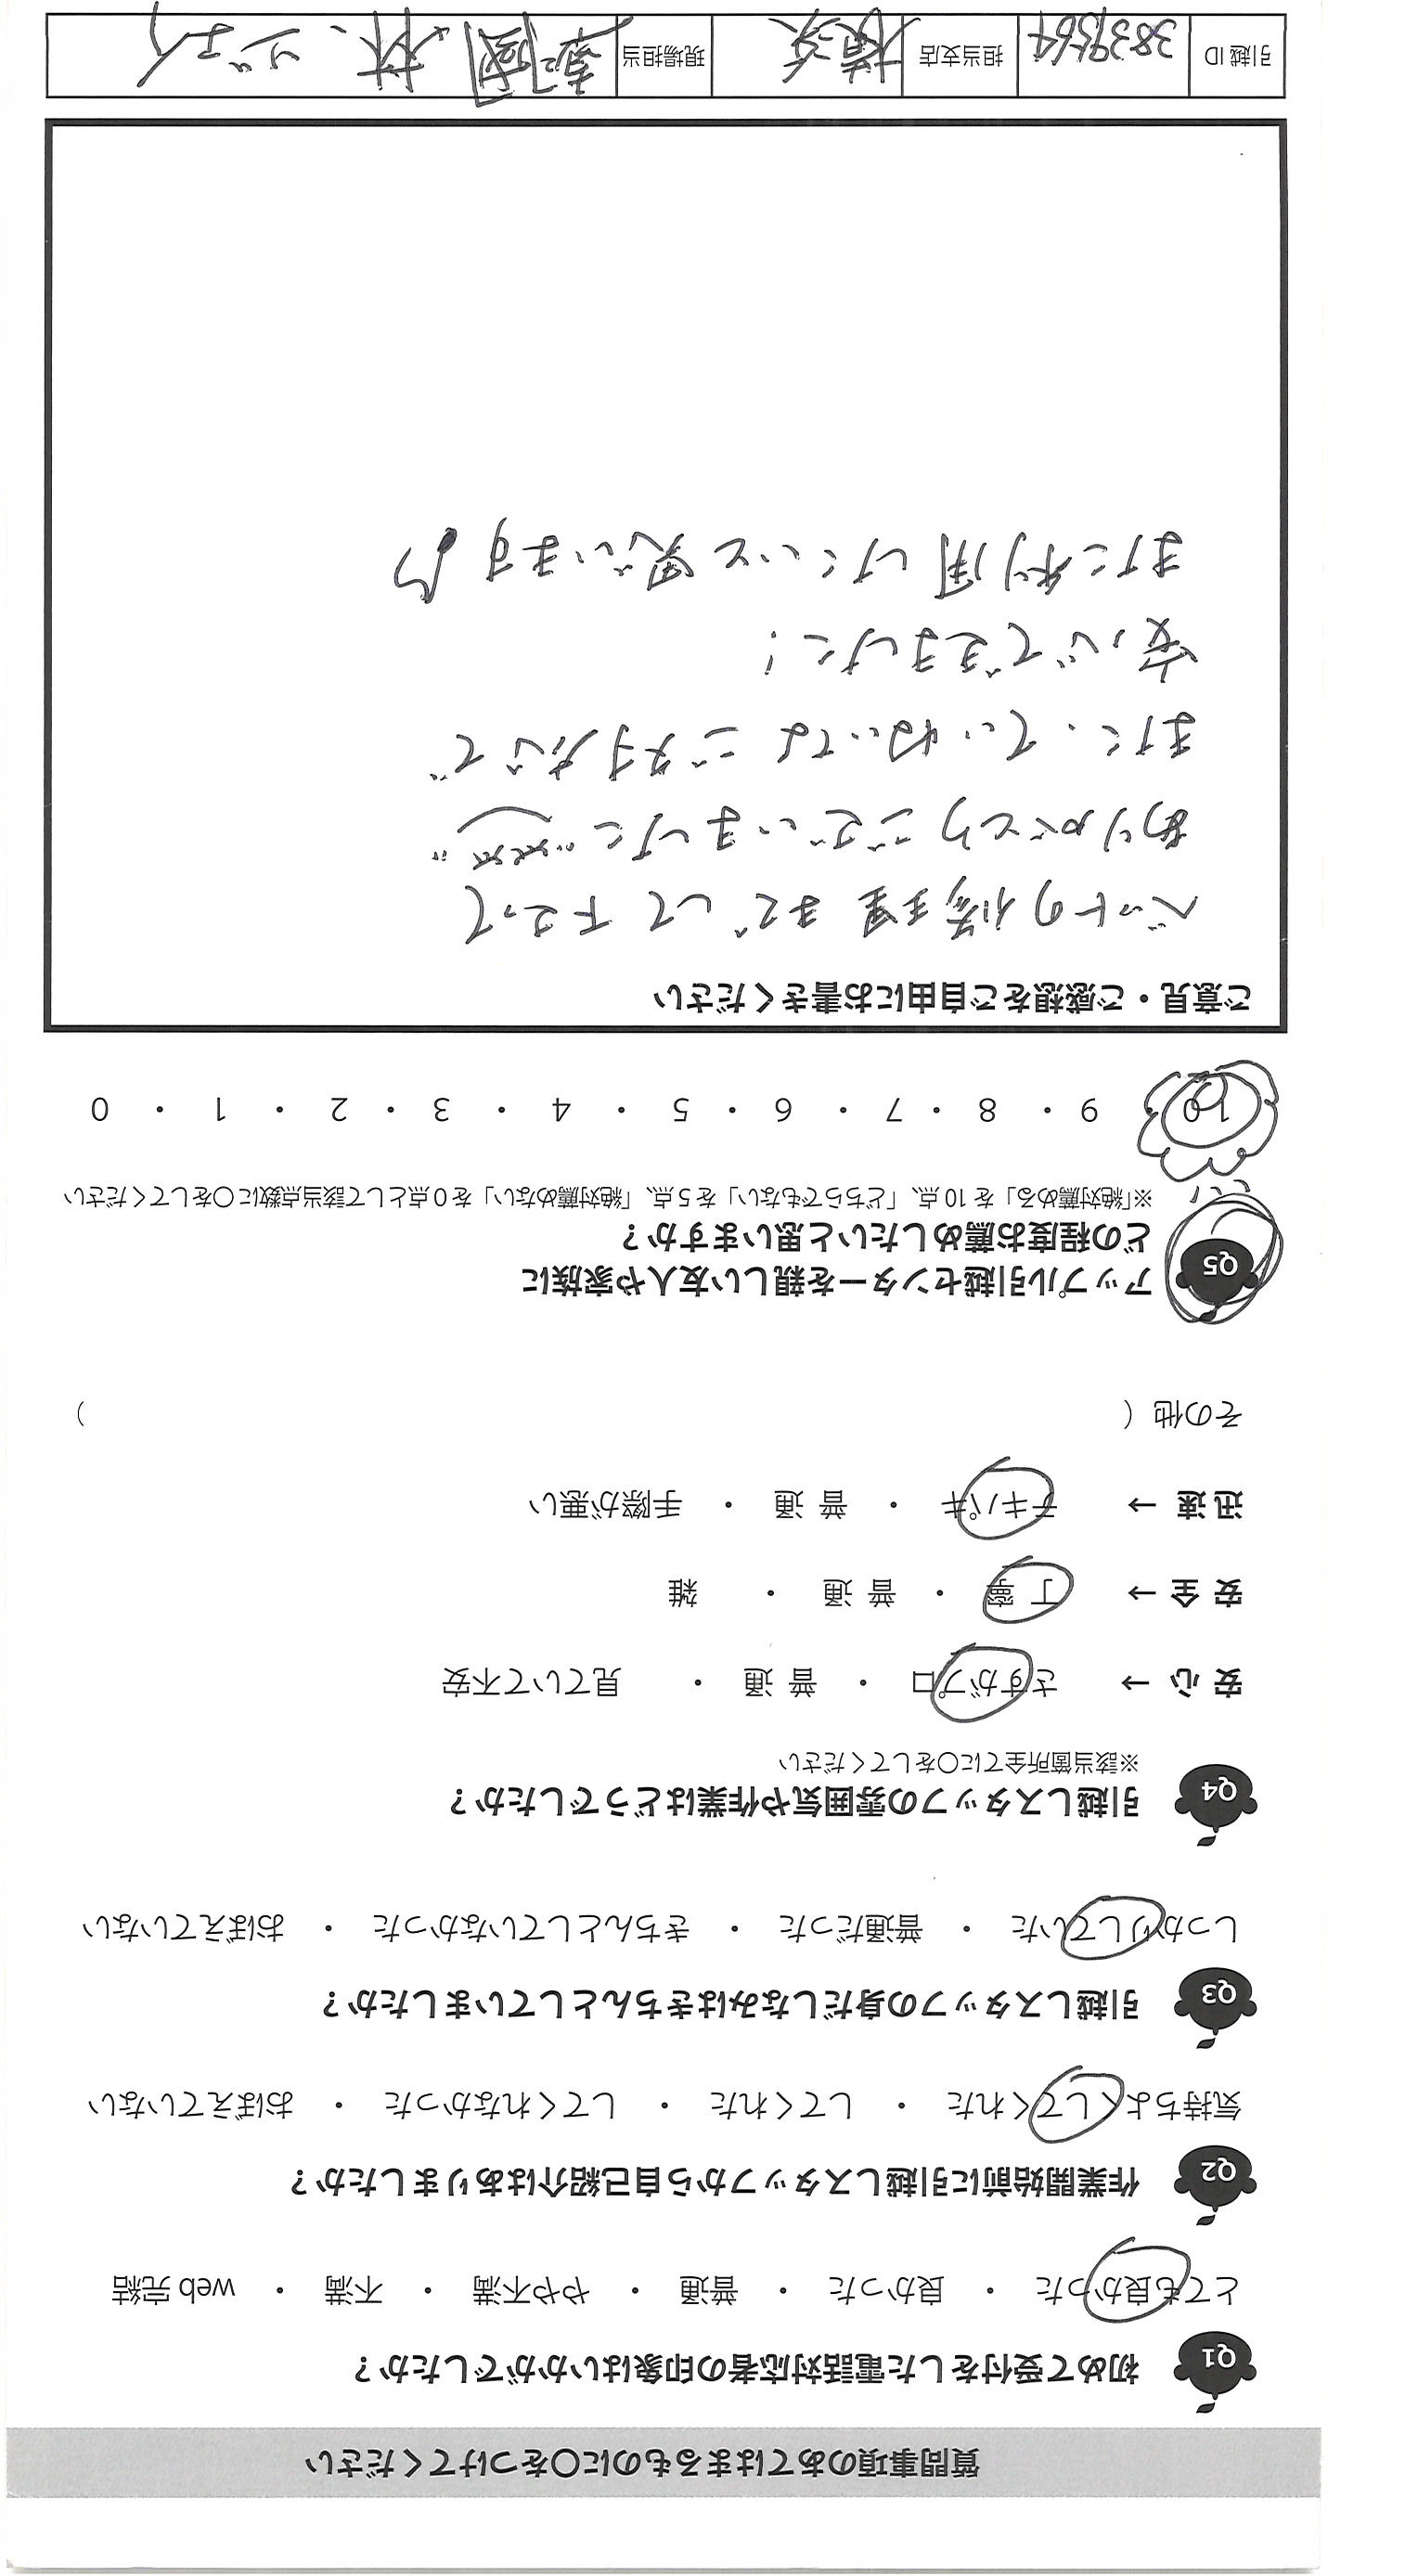 質問事項のあてはまるものに〇をつけてください
Q1 初めて受付をした電話対応者の印象はいかがでしたか?
とても良かった ・ 良かった ・ 普通 ・ やや不満 ・ 不満 ・ web 完結
Q2 作業開始前に引越しスタッフから自己紹介はありましたか?
気持ちよくしてくれた ・ してくれた ・ してくれなかった ・ おぼえていない
Q3 引越しスタッフの身だしなみはきちんとしていましたか?
しっかりしていた ・ 普通だった ・ きちんとしていなかった ・ おぼえていない
Q4 引越しスタッフの雰囲気や作業はどうでしたか?
※該当箇所全てに〇をしてください
安 心 → さすがプロ ・ 普 通 ・ 見ていて不安
安 全 → 丁 寧 ・ 普 通 ・ 雑
迅 速 → テキパキ ・ 普 通 ・ 手際が悪い
その他 ( )
Q5 アップル引越センターを親しい友人や家族に
どの程度お薦めしたいと思いますか?
※「絶対薦める」を 10 点、「どちらでもない」を 5 点、「絶対薦めない」を 0 点として該当点数に〇をしてください
10 9 ・ 8 ・ 7 ・ 6 ・ 5 ・ 4 ・ 3 ・ 2 ・ 1 ・ 0
ご意見・ご感想をご自由にお書きください
ベットの修理まで して下さって
ありがとうございました
また、ていねいでよ
安心できました!
また利用したいと思います♪
引越 ID 3839564 担当支店 横浜 現場担当 林、ジェイ